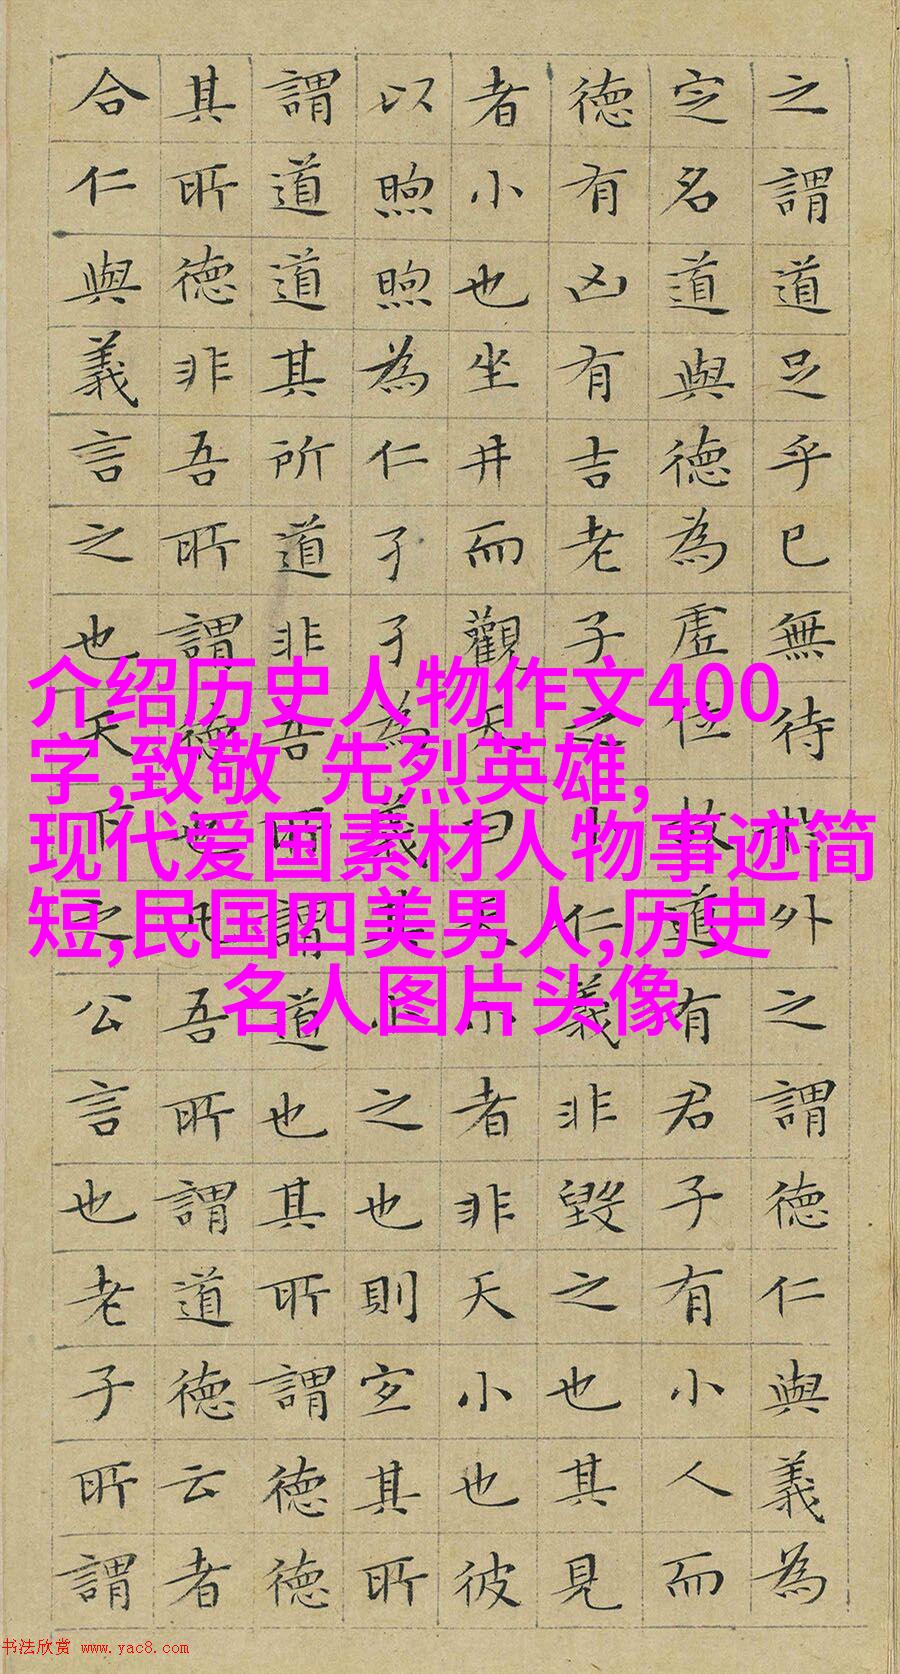 之謂道足乎已無待於外之謂德仁與義為
定名道與德為虛位故道有君子有小人而
德有凶有吉老子之小仁義非毀之也其見
者小也坐井而觀天曰天小者非天小也彼
以煦煦為仁孑孑為義其小之也則宜其所
謂道道其所道非吾所謂道也其所謂德德
其所德非吾所謂德也凡吾所謂道德云者
合仁與義言之也天下之公言也老子所謂
介绍历史人物作文400
字,致敬 先烈英雄,
现代爱国素材人物事迹简
短,民国四美男人,历史
名人图片头像
书法欣赏 www.yac8.com